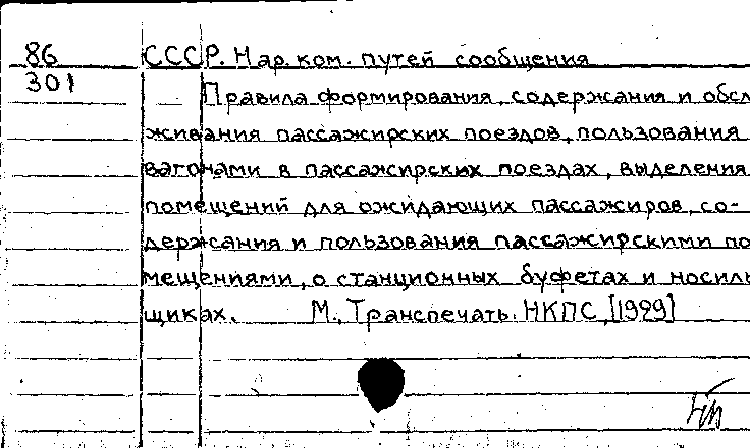 86 СССР. Нар. ком. путей сообщения
301 Правила формирования, содержания и обсл
живания пассажирских поездов, пользования
вагонами в пассажирских поездах, выделения
помещений для ожидающих пассажиров, со-
держания и пользования пассажирскими по
мещениями, о станционных буфетах и носиль
щиках. М., Транспечать НКПС, [1929]